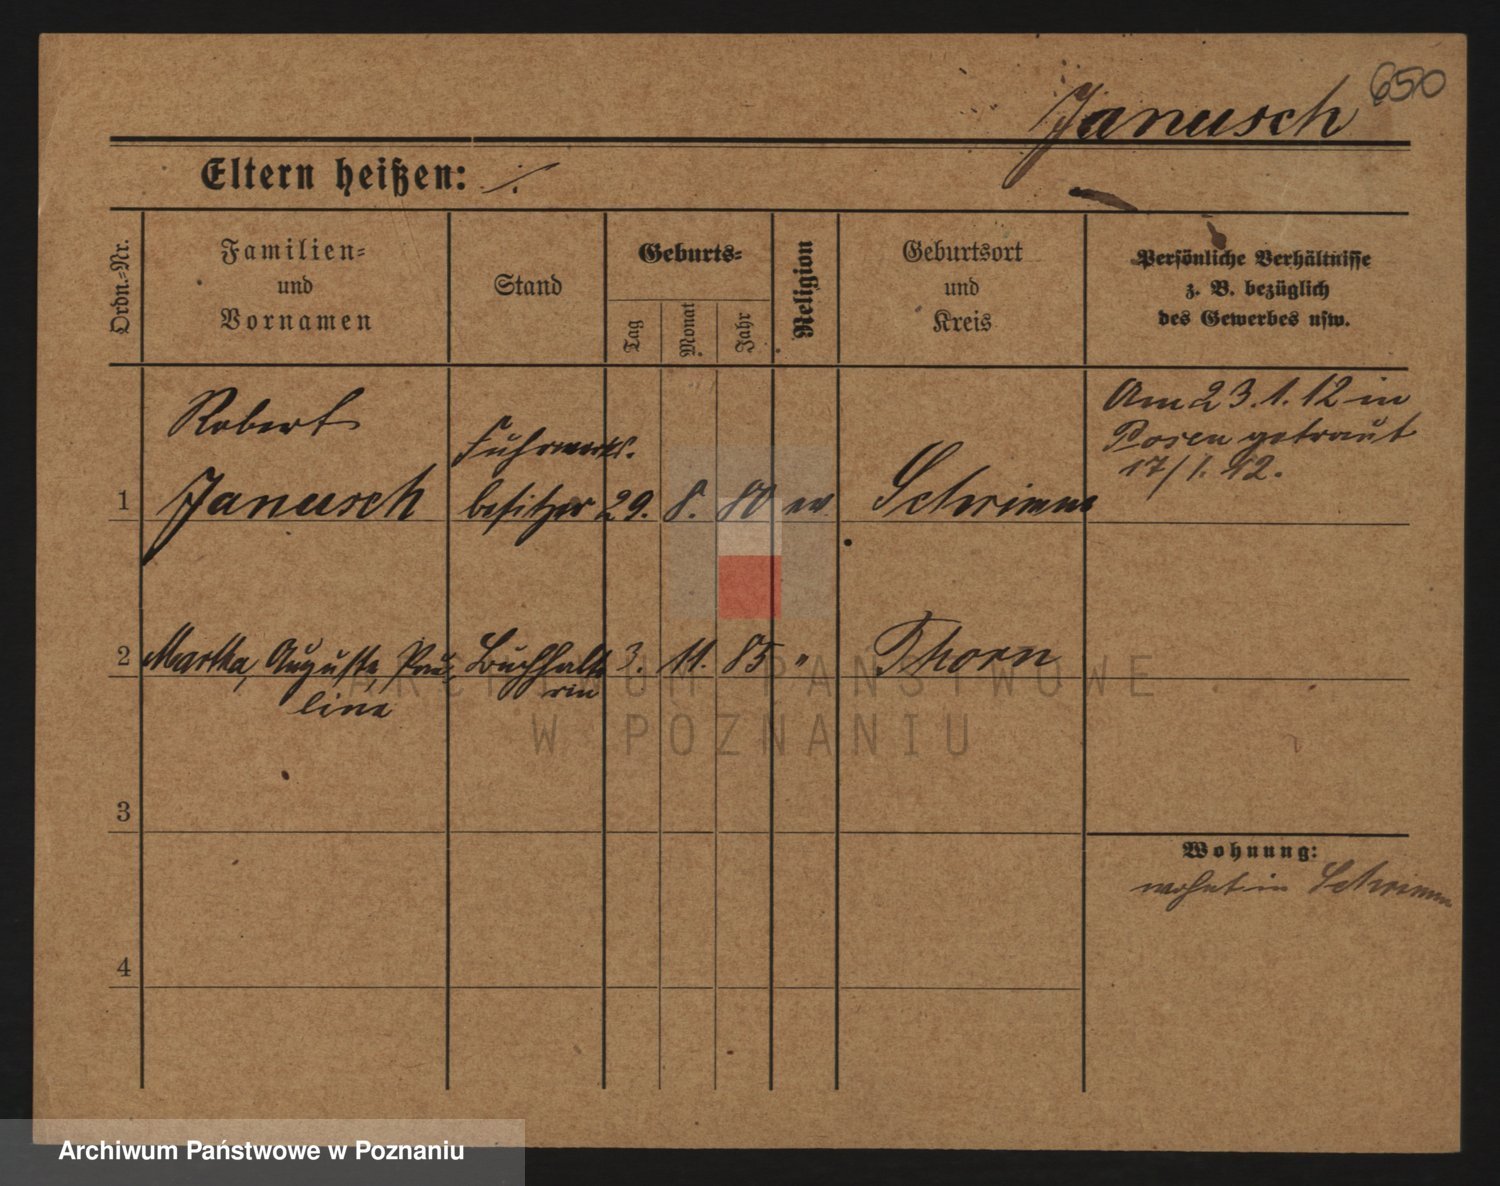 650
Janusch
Eltern heißen: ./.
Ordn.-Nr.
Familien-
und
Vornamen
Stand
Geburts-
Tag
Monat
Jahr
Religion
Geburtsort
und
Kreis
Persönliche Verhältnisse
z. B. bezüglich
des Gewerbes usw.
1
Robert
Janusch
Fuhrwerks-
besitzer
29.
8.
80
ev
Schrimm
Am 23.1.12 in
Posen getraut
17/1.12.
2
Martha, Auguste, Pau-
line
Buchhalte
rin
3.
11.
85
"
Thorn
3
Wohnung:
wohnt in Schrimm
4
ARCHIWUM PAŃSTWOWE
W POZNANIU
Archiwum Państwowe w Poznaniu